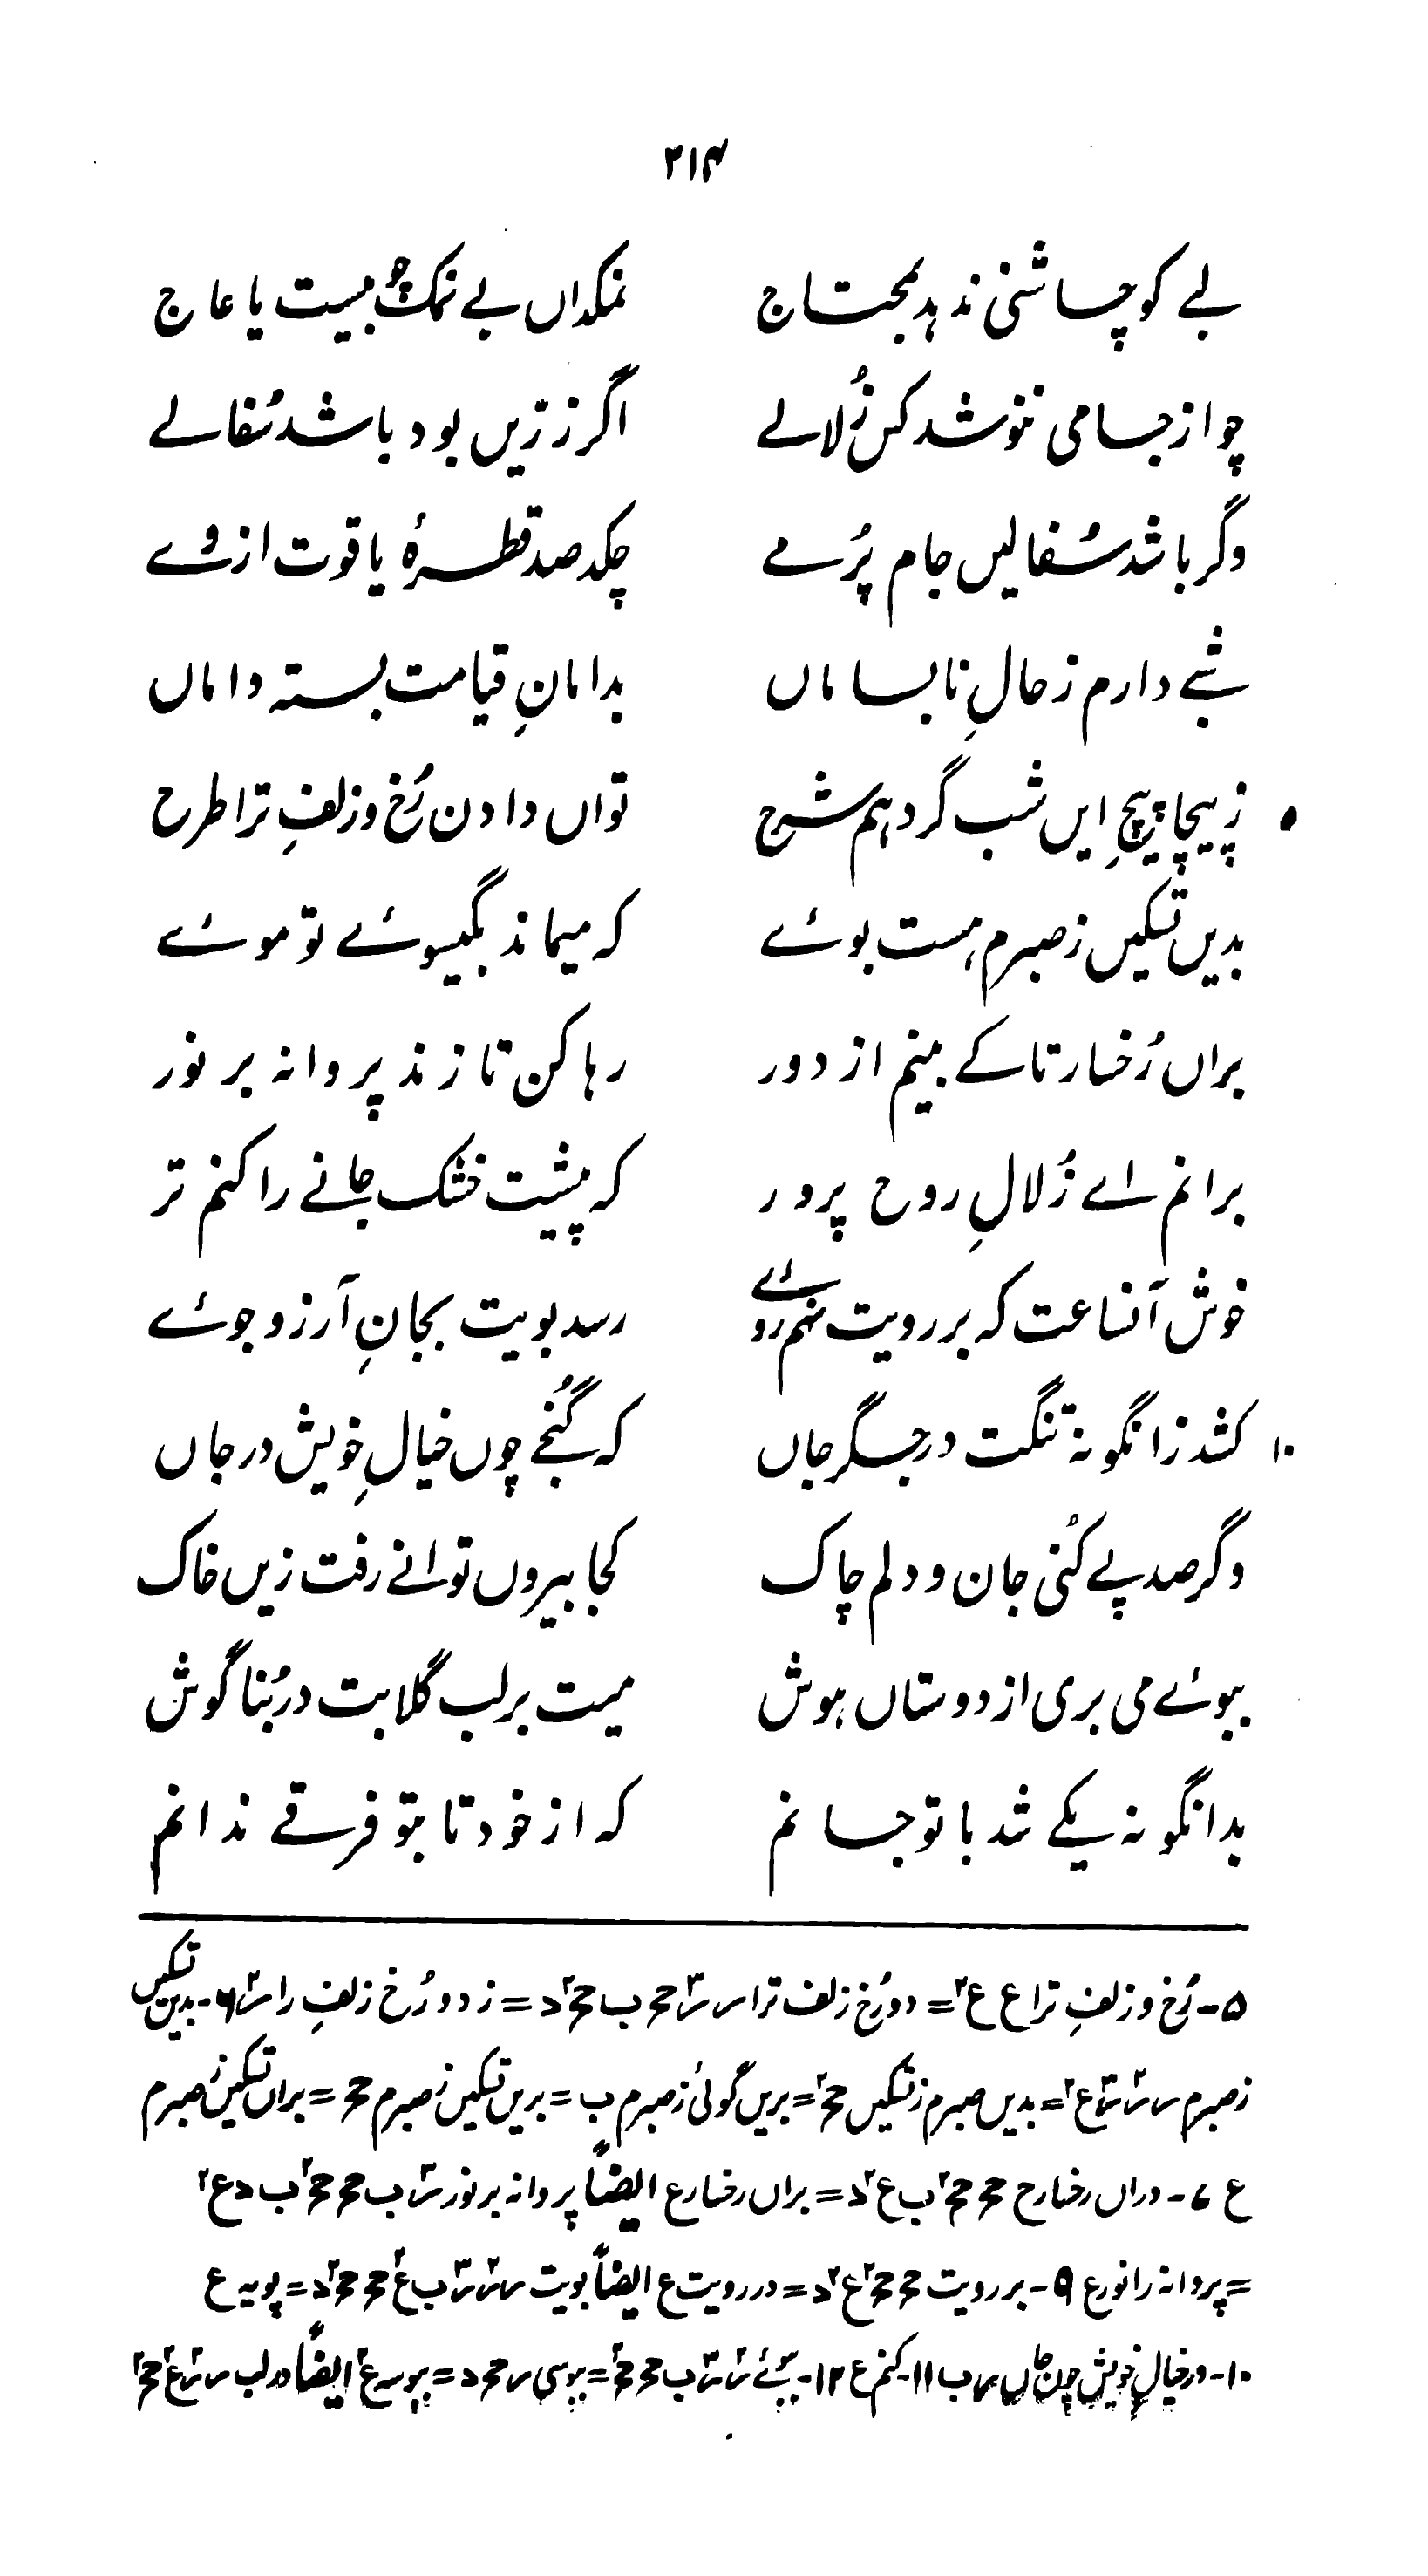 ۲۱۴
لبے کو چاشنی ندہد بمحتاج نمکداں بے نمک چہ بیست یا عاج
چو از جامی ننوشد کس زُلالے اگر زرّیں بود باشد سُفالے
وگر باشد سُفالیں جام پُر مے چکد صد قطرۂ یاقوت از وے
شبے دارم ز حالِ نابساماں بدامانِ قیامت بستہ داماں
ز پیچاپیچِ ایں شب گر دہم شرح تواں دادن رُخ و زلفِ ترا طرح
بدیں تسکیں ز صبرم ہست بوئے کہ میماند بگیسوئے تو موئے
براں رُخسار تا کے بینم از دور رہا کن تا زند پروانہ بر نور
برانم اے زُلالِ روح پرور کہ پیشت خشک جانے را کنم تر
خوش آنساعت کہ بر رویت نہم روئے رسد بویت بجانِ آرزو جوئے
۱۰ کشد زانگونہ تنگت در جگر جاں کہ گُنجے چوں خیالِ خویش در جاں
وگر صد پے کُنی جان و دلم چاک کجا بیروں توانے رفت زیں خاک
ببوئے می بری از دوستاں ہوش میت بر لب گلابت در بُناگوش
بدانگونہ یکے شد با تو جانم کہ از خود تا بتو فرقے ندانم
۵- رُخ و زلفِ ترا ع ع۲ = دو رُخ زلف ترا س س۳ ح ب ح۲ د = ز دو رُخ زلفِ را س۲ ۶- بدین تسکیں
ز صبرم س س۲ س۳ ع۲ = بدیں صبرم ز تسکیں ح۲ = بریں گوئی ز صبرم ب = بریں تسکیں ز صبرم ح = براں تسکیں ز صبرم
ع ۷- دراں رخسار ح ح ح۲ ب ع۲ د = براں رخسار ع ایضاً پروانہ بر نور س۳ ب ح ح۲ ب د ع۲
= پروانہ را نور ع ۹- بر رویت ح ح۲ ع۲ د = در رویت ع ایضاً بویت س س۲ س۳ ب ع۲ ح ح۲ د = پویہ ع
۱۰- در خیالِ خویش چون جاں س ب ۱۱- کنم ع ۱۲- ببوئے س۲ س۳ ب ح ح۲ = ببوسی س ح د = ببوسہ ع۲ ایضاً در لب س س۲ ع ع۲ ح۲